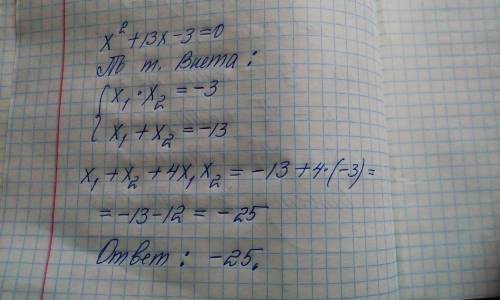 x² + 13x - 3 = 0
По т. Виета:
x₁ · x₂ = -3
x₁ + x₂ = -13
x₁ + x₂ + 4x₁x₂ = -13 + 4·(-3) =
= -13 - 12 = -25
Ответ: -25.